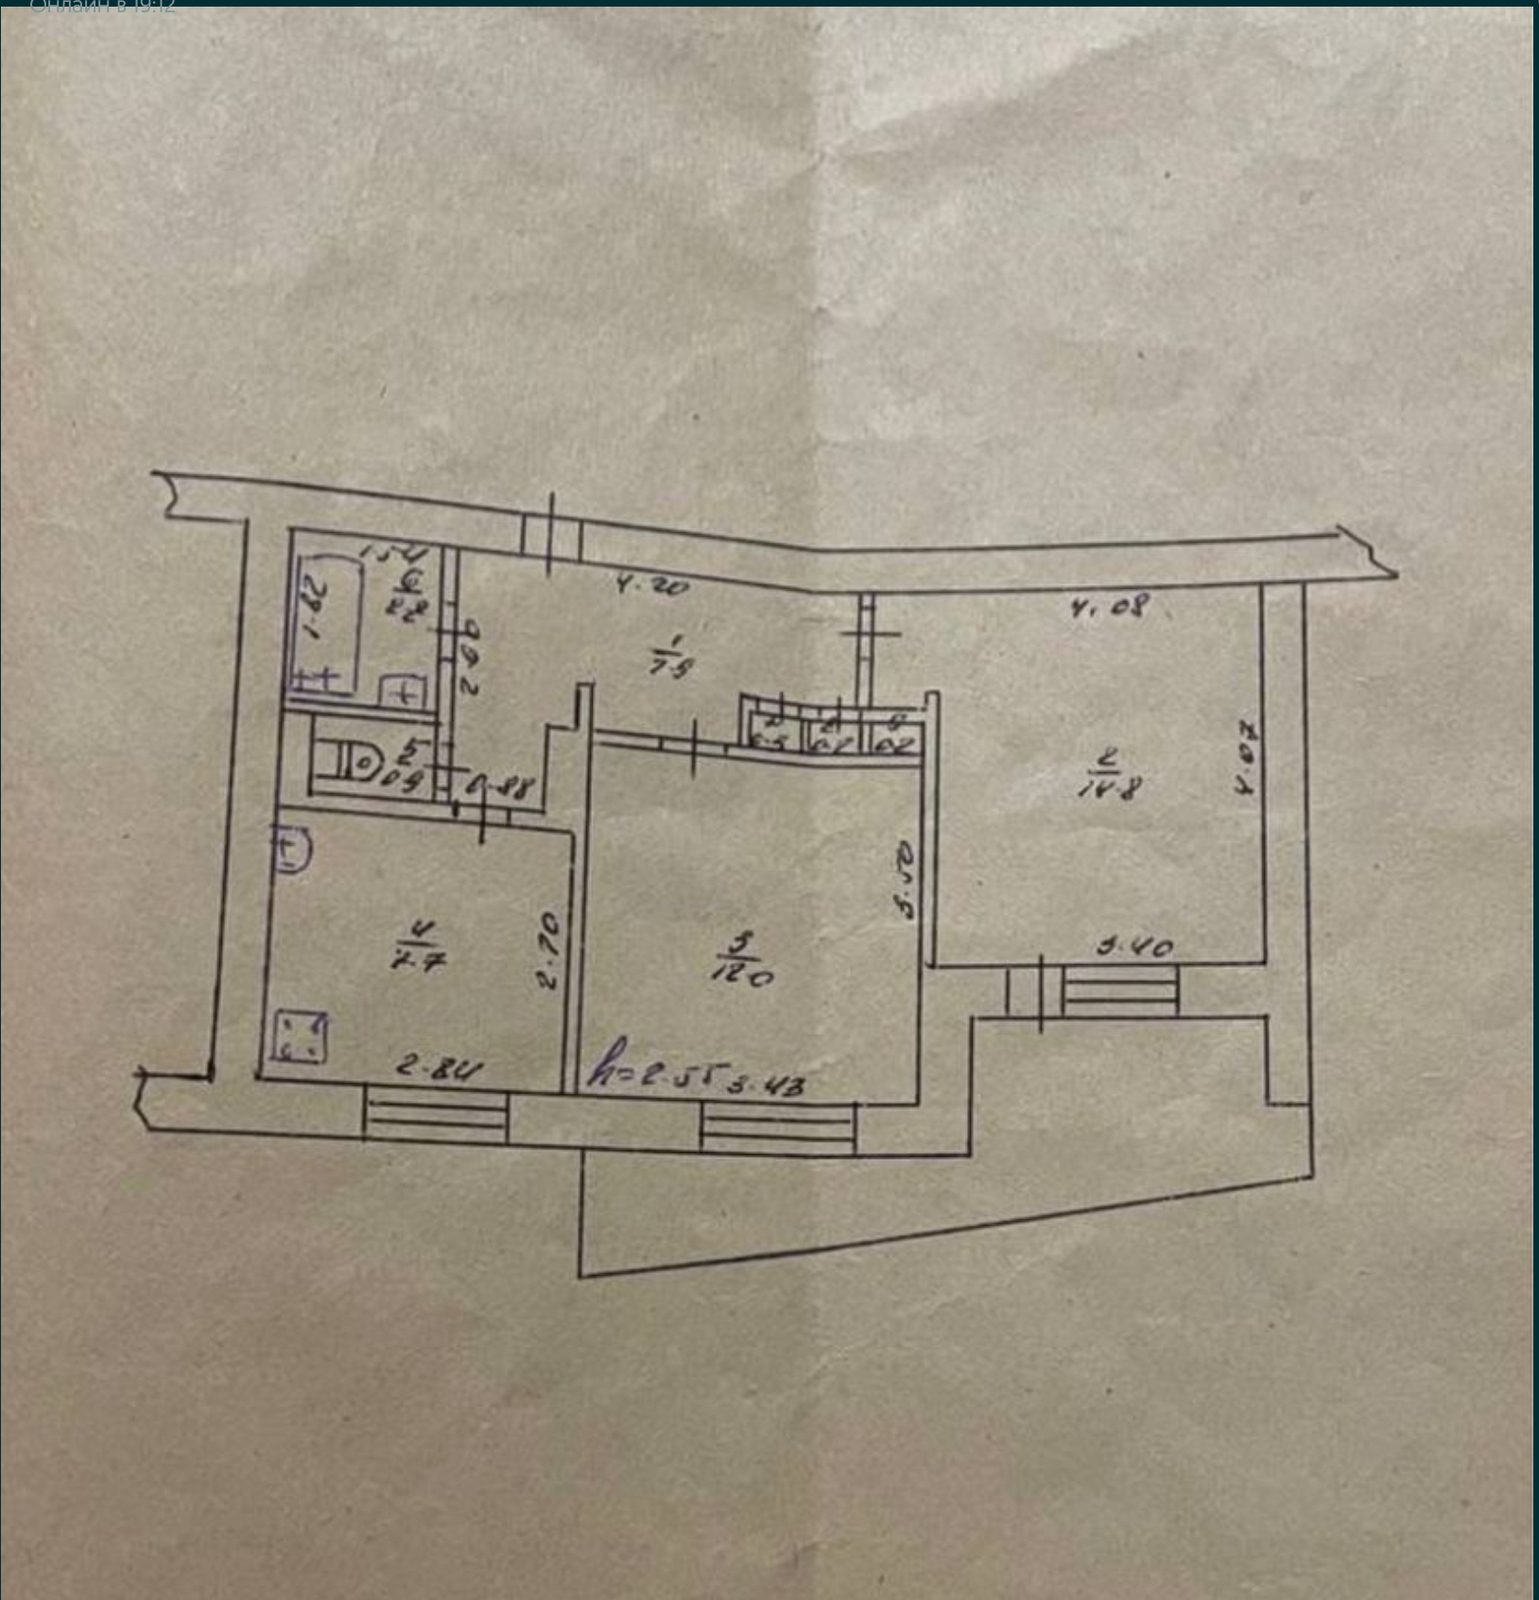 Онлайн в 19:12
1.54
6
2.2
1.82
4.20
4.08
2.60
1
7.9
7
0.3
8
0.2
9
0.2
5
0.9
0.88
2
14.8
4.07
3.50
4
7.7
2.70
3
12.0
3.40
2.84
h=2.55
3.43